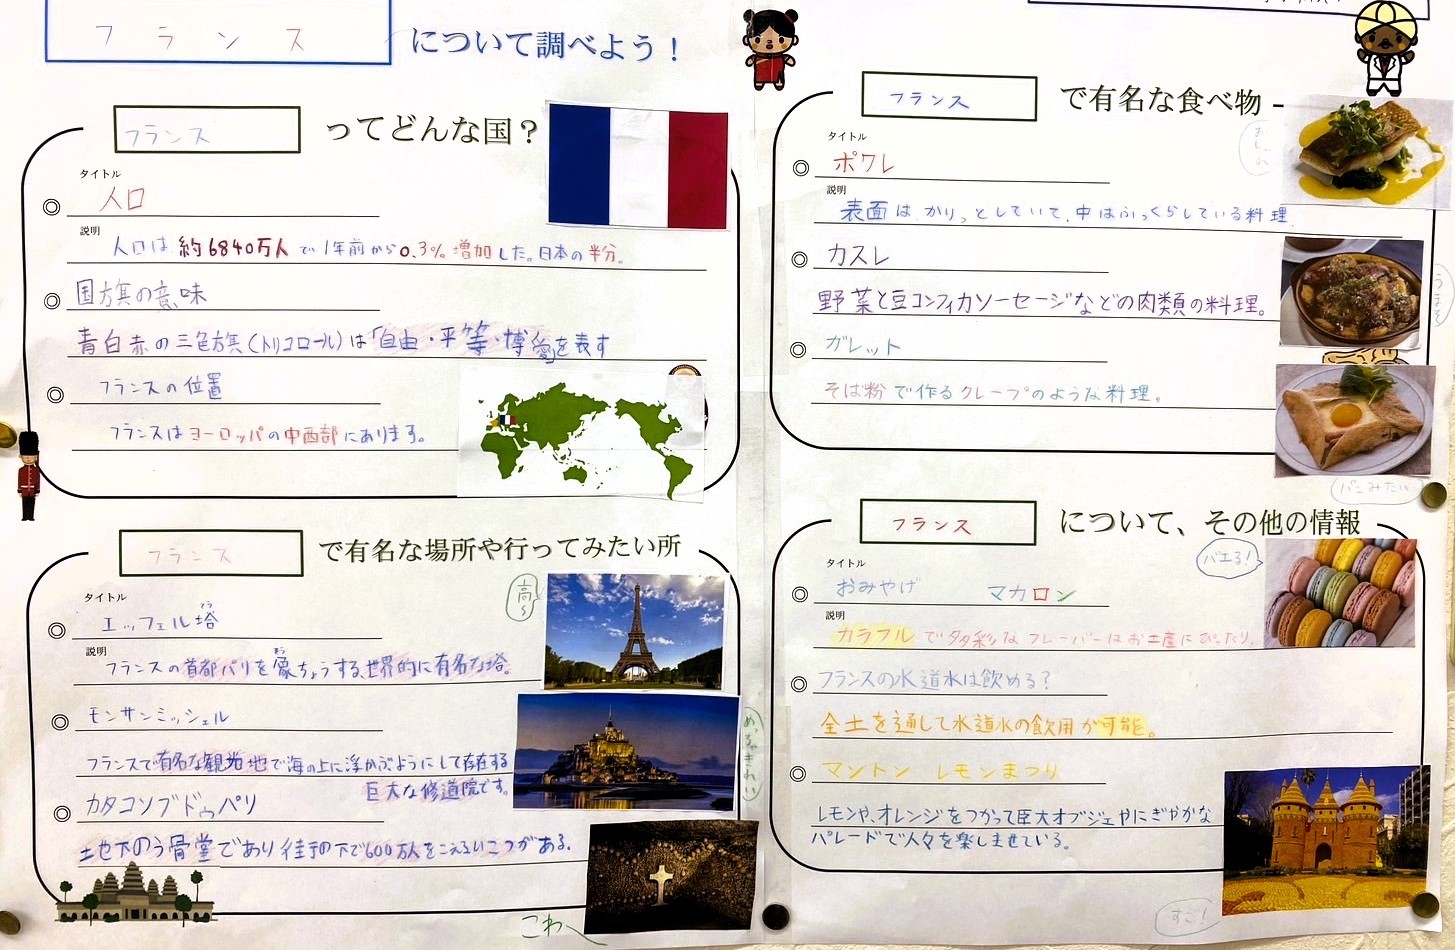 フランス について調べよう！
フランス ってどんな国？
タイトル
◎ 人口
説明
人口は約6840万人で1年前から0.3%増加した。日本の半分。
◎ 国旗の意味
青白赤の三色旗(トリコロール)は「自由・平等・博愛」を表す
◎ フランスの位置
フランスはヨーロッパの中西部にあります。
フランス で有名な場所や行ってみたい所
タイトル
◎ エッフェル塔
とう
高〜
説明
フランスの首都パリを象ちょうする世界的に有名な塔。
しょう
◎ モンサンミッシェル
フランスで有名な観光地で海の上に浮かぶようにして存在する
巨大な修道院です。
めっちゃきれい
◎ カタコンブドゥパリ
土地下のう骨堂であり街の下で600万人をこえるいこつがある。
こわ〜
フランス で有名な食べ物
タイトル
◎ ポワレ
おしゃれ
説明
表面はかりっとしていて、中はふっくらしている料理
◎ カスレ
野菜と豆コンフィカソーセージなどの肉類の料理。
うまそ
◎ ガレット
そば粉で作るクレープのような料理。
パンみたい
フランス について、その他の情報
タイトル
◎ おみやげ マカロン
バエる！
説明
カラフルで多彩なフレーバーはお土産にぴったり。
◎ フランスの水道水は飲める？
全土を通して水道水の飲用が可能。
◎ マントン レモンまつり
レモンや、オレンジをつかって臣大オブジェやにぎやかな
パレードで人々を楽しませている。
すご！